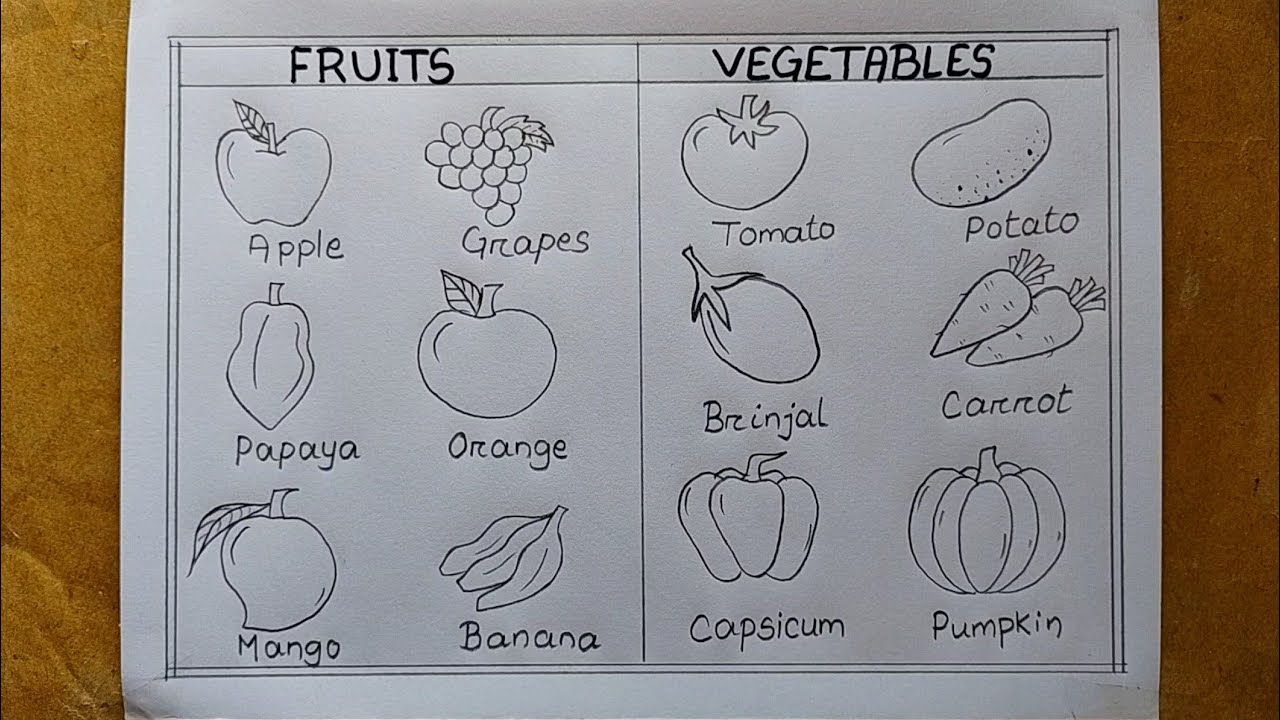 FRUITS
VEGETABLES
Apple
Grapes
Tomato
Potato
Papaya
Orange
Brinjal
Carrot
Mango
Banana
Capsicum
Pumpkin